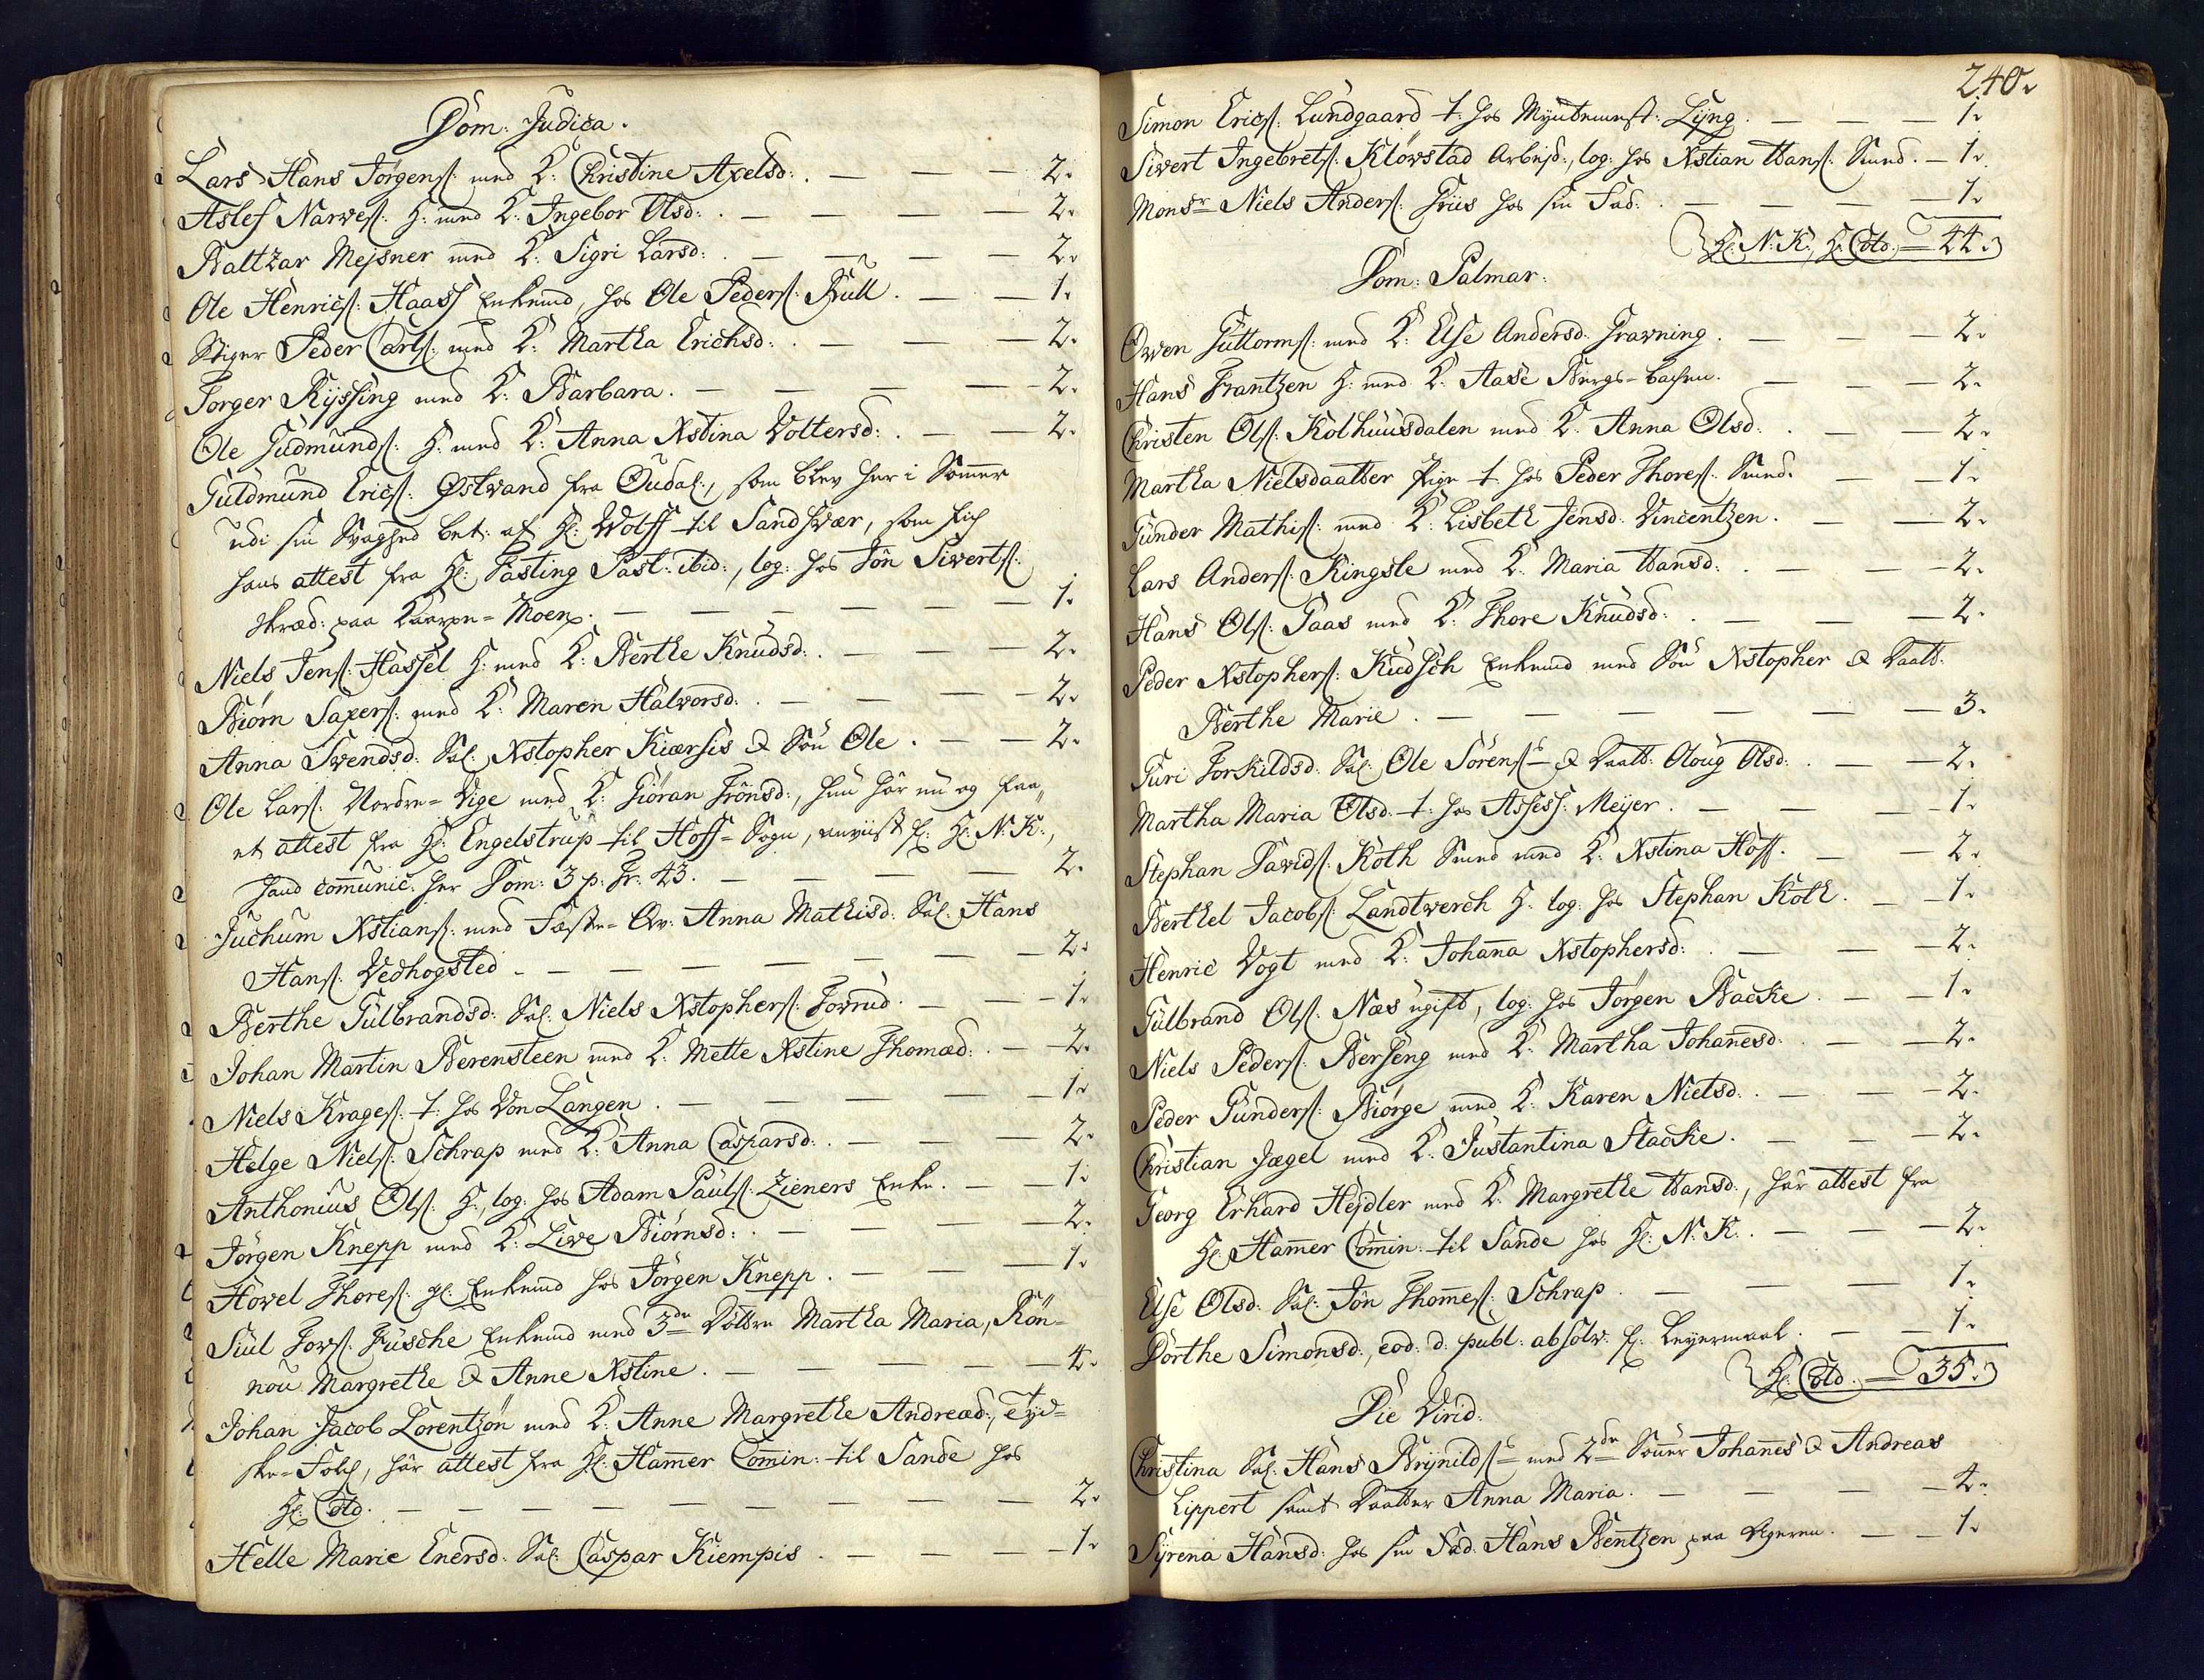 Dom: Judica.
Lars Hans Jørgens: med K: Christine Axelsd: . — — — 2.
Aslef Narves: H: med K: Ingebor Olsd: . — — — — 2.
Baltzar Mejsner med K: Sigri Larsd: . — — — — 2.
Ole Henrics: Haass Enkemd, hos Ole Peders: Krull . — — 1.
Stiger Peder Carls: med K: Martha Erichsd: . — — — 2.
Torger Ryssing med K: Barbara . — — — — 2.
Ole Gudmunds: H: med K: Anna Xstina Voltersd: . — — 2.
Guldmund Erics: Østvand fra Øudal:, som blev her i Sommer
udi sin Svaghed bet: af Hr: Wolff til Sandsvær, som fich
hans attest fra Hr: Fasting Past: ibid:, log: hos Jôn Siverts:
skræd: paa Kaarpe-Moen . — — — — — — 1.
Niels Jens: Hassel H: med K: Berthe Knudsd: . — — — 2.
Biörn Saxers: med K: Maren Halvorsd: . — — — — 2.
Anna Svendsd: Sal: Xstopher Kiærsis & Sön Ole . — — 2.
Ole Lars: Nordre-Vige med K: Giöran Trönsd:, hun har nu og faa„
et attest fra Hr: Engelstrup til Hoff-Sogn, anviist f: Hr: N: K:,
hand comunic: her Dom: 3 p: Tr: 43. — — — — 2.
Juchum Xstians: med Fæste-Qv: Anna Mathisd: Sal: Hans
Hans: Vedhogsted — — — — — — — 2.
Berthe Gulbrandsd: Sal: Niels Xstophers: Tovrud . — — 1.
Johan Martin Berensteen med K: Mette Xstine Thomæd: . — 2.
Niels Krages: t: hos Von Langen . — — — — — 1.
Helge Niels: Schrap med K: Anna Casparsd: . — — — 2.
Anthonius Ols: H:, log: hos Adam Pauls: Zieners Enke . — — 1.
Jörgen Knepp med K: Live Biörnsd: . — — — — 2.
Hovel Thores: gl: Enkemd hos Jörgen Knepp . — — — 1.
Siul Tovs: Fusche Enkemd med 3de Döttre Martha Maria, Rön-
nou Margrethe & Anne Xstine . — — — — — 4.
Johan Jacob Lorentzön med K: Anne Margrethe Andreæd:, Tyd-
ske-Folch, har attest fra Hr: Hamer Comin: til Sande hos
Hr: Cold. — — — — — — — — — 2.
Helle Marie Enersd: Sal: Caspar Kiempis . — — — — 1.
240.
Simon Erics: Lundgaard t: hos Myntemest: Lyng . — — — 1.
Sivert Ingebrets: Klöwstad Arbejd:, log: hos Xstian Hans: Smed . — 1.
Monsr Niels Anders: Friis hos sin Fad: . — — — — 1.
Hr: N: K:, Hr: Cold. — 44.
Dom: Palmar:
Owen Guttorms: med K: Else Andersd: Gravning . — — — 2.
Hans Frantzen H: med K: Aase Bergs-bachen . — — — 2.
Christen Ols: Kolhuusdalen med K: Anna Olsd: . — — 2.
Martha Nielsdaatter Pige t: hos Peder Thores: Smed . — — 1.
Gunder Mathis: med K: Lisbeth Jensd: Vincentzen . — — 2.
Lars Anders: Kingsle med K: Maria Hansd: . — — — 2.
Hans Ols: Taas med K: Thore Knudsd: . — — — 2.
Peder Xstophers: Kudsch Enkemd med Sön Xstopher & Daatt:
Berthe Marie . — — — — — — — 3.
Guri Torkildsd: Sal: Ole Sörens: & Daatt: Oloug Olsd: . — — 2.
Martha Maria Olsd: t: hos Assess: Meyer . — — — 1.
Stephan Davids: Koth Smed med K: Xstina Hoff . — — 2.
Berthel Jacobs: Landtverch H: log: hos Stephan Koth . — — 1.
Henric Vogt med K: Johana Xstophersd: . — — — 2.
Gulbrand Ols: Næs ugift, log: hos Jörgen Backe . — — 1.
Niels Peders: Berseng med K: Martha Johanesd: . — — 2.
Peder Gunders: Biörge med K: Karen Nielsd: . — — — 2.
Christian Jægel med K: Justantina Stacke . — — — 2.
Georg Erhard Hejdler med K: Margrethe Hansd:, har attest fra
Hr: Hamer Comin: til Sande hos Hr: N: K: . — — — 2.
Else Olsd: Sal: Jön Thommes: Schrap . — — — 1.
Dorthe Simonsd:, eod: d: publ: absolv: f: Leyermaal . — — 1.
Hr: Cold. — 35.
Die Virid:
Christina Sal: Hans Brynilds: med 2de Sönner Johanes & Andreas
Lippert samt Daatter Anna Maria . — — — — 4.
Syrena Hansd: hos sin Fad: Hans Bentzen paa Ageren . — — 1.